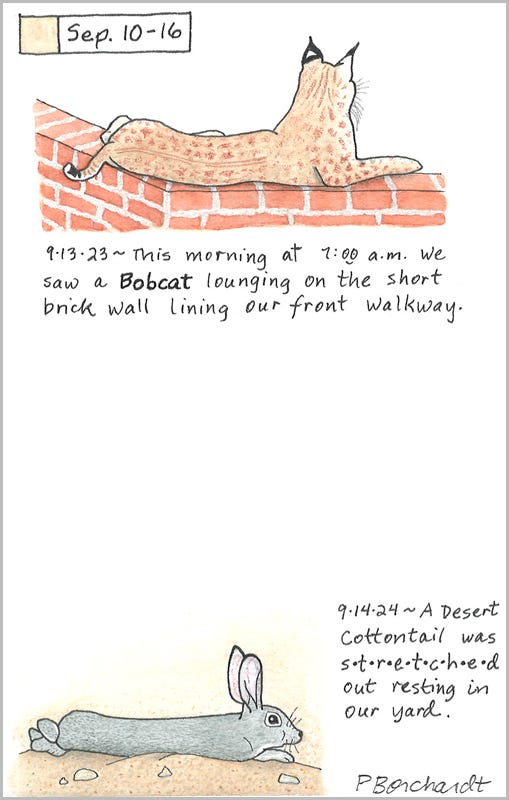 Sep. 10-16
9.13.23~This morning at 7:00 a.m. we
saw a Bobcat lounging on the short
brick wall lining our front walkway.
9.14.24~A Desert
Cottontail was
s•t•r•e•t•c•h•e•d
out resting in
our yard.
P Borchardt